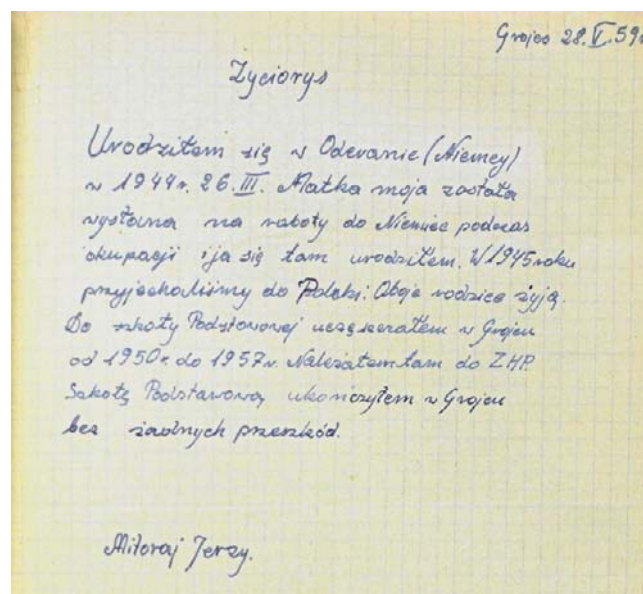 Grojec 28.V.59r
Życiorys
Urodziłem się w Oderanie (Niemcy)
w 1944r. 26.III. Matka moja została
wysłana na roboty do Niemiec podczas
okupacji i ja się tam urodziłem. W 1945 roku
przyjechaliśmy do Polski. Oboje rodzice żyją.
Do szkoły Podstawowej uczęszczałem w Grojcu
od 1950r. do 1957r. Należałem tam do ZHP.
Szkołę Podstawową ukończyłem w Grojcu
bez żadnych przeszkód.
Miłoraj Jerzy.